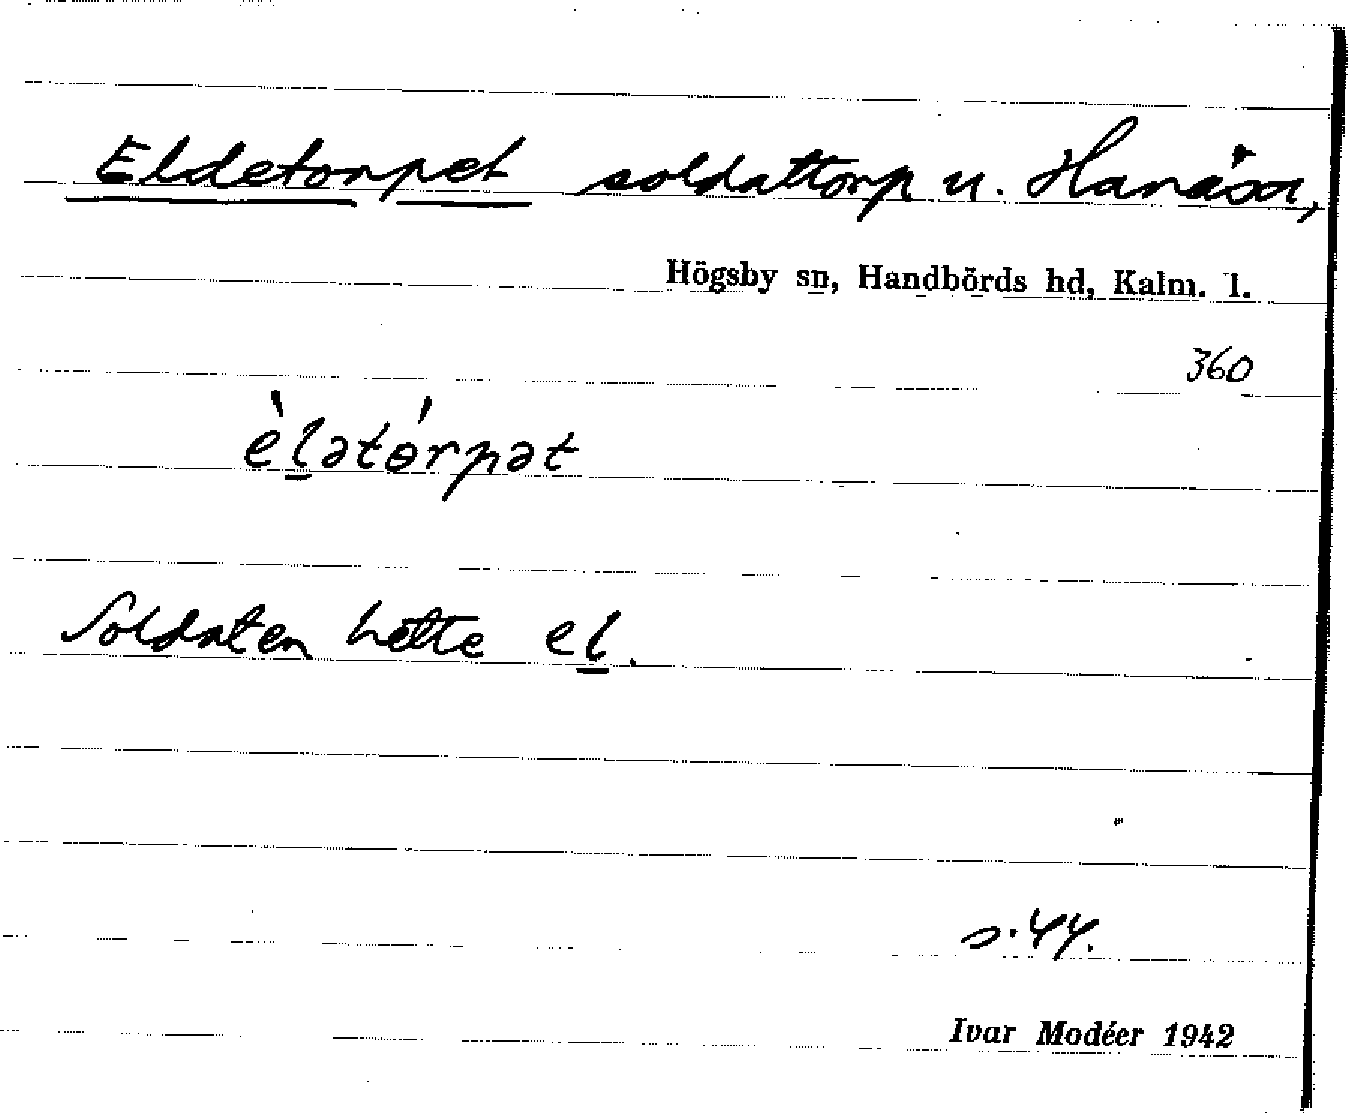 Eldetorpet soldattorp u. Hanåsa,
Högsby sn, Handbörds hd, Kalm. l.
360
èl̲ətɵ́rpət
Soldaten hette el̲.
s. 44.
Ivar Modéer 1942